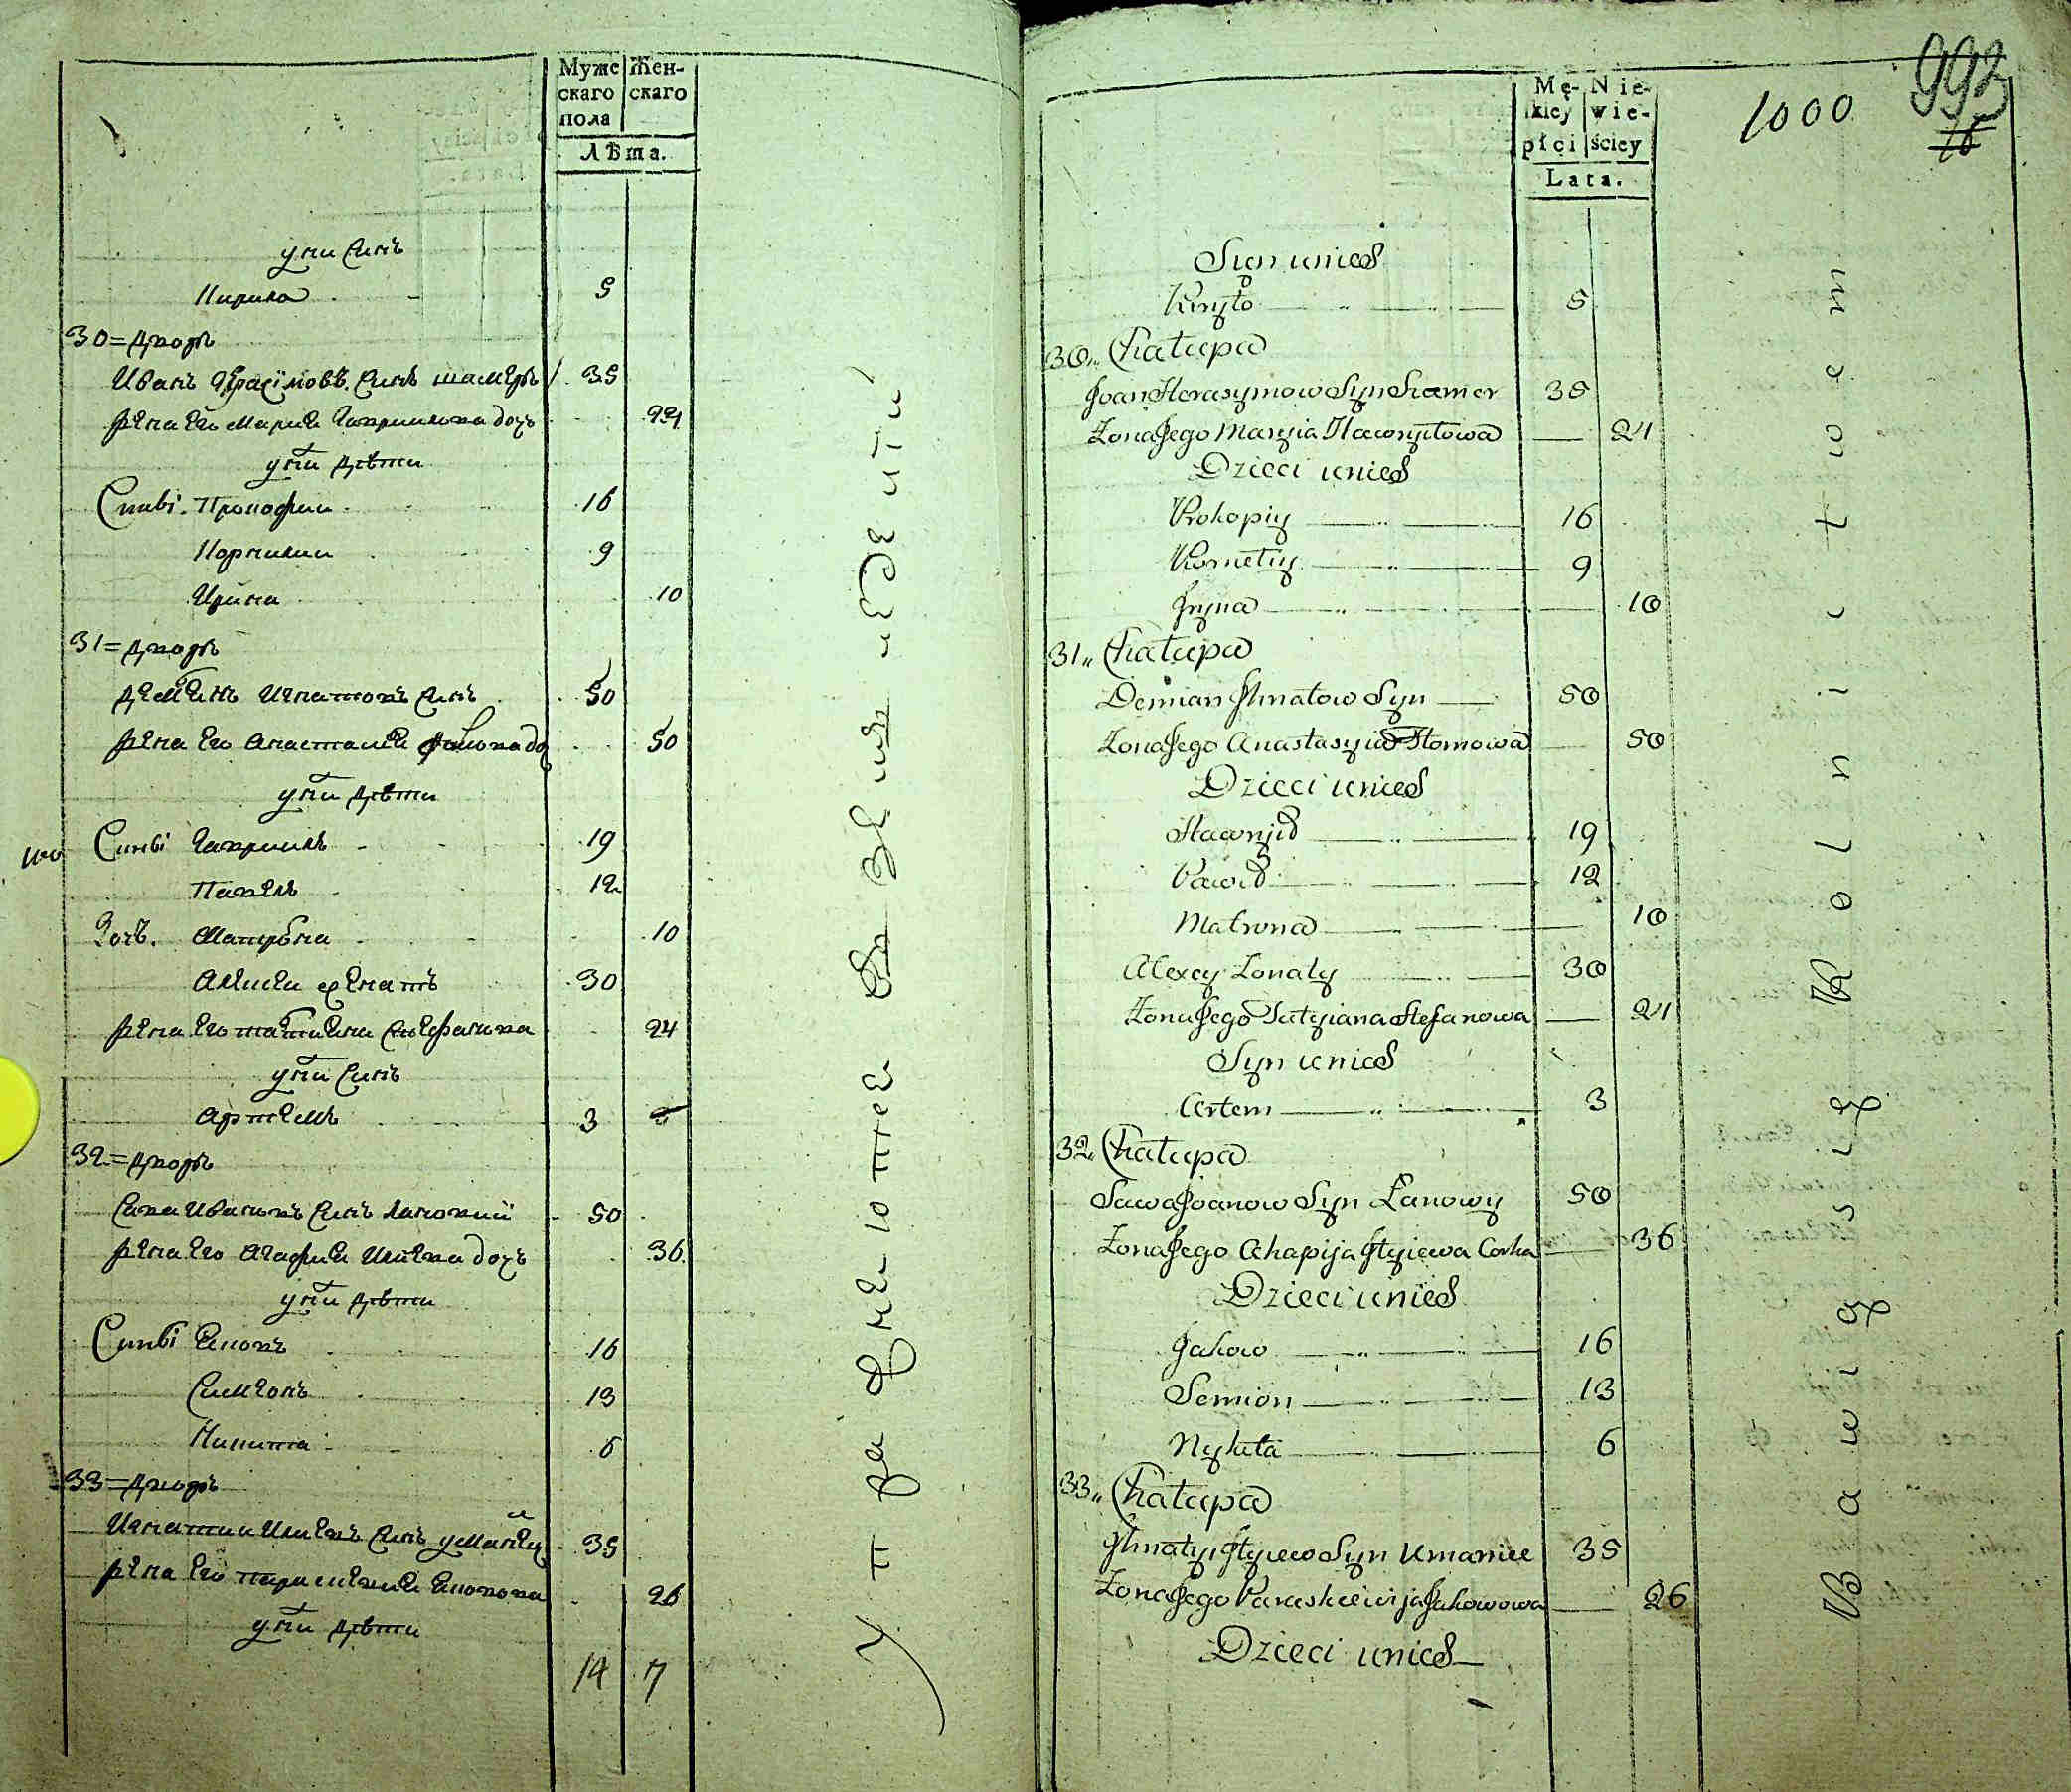 Муже Жен-
скаго скаго
пола
Лѣта.
у них Синъ
Кирило 5
30 = Дворъ
Иванъ Герасімовъ Синъ шамеръ 35
жена Его Мария Гаврилова дочъ 24
у них дѣти
Синві Прокофии 16
Корнилии 9
Ирина 10
31 = Дворъ
Демѣянъ Игнатовъ Синъ 50
жена Его Анастасия дочъ 50
у них дѣти
100 Синві Гавриилъ 19
Павелъ 12
Дочъ. Матрона 10
Алексей женатъ 30
жена Его татияна Стефанова 24
у них Синъ
Артемъ 3
32 = Дворъ
Сава Ивановъ Синъ лановий 50
жена Его Агафия Илиева дочъ 36
у них дѣти
Синві Яковъ 16
Симеонъ 13
Никита 6
33 = Дворъ
Игнатии Илиевъ Синъ уманец 35
жена Его параскевия Яковова 26
у них дѣти
14 7
Mę- Nie-
skiey wie-
płci ściey
Lata.
1000
993
16
Syn unich
Kiryło 5
30„ Chałupa
Joan Herasymow Syn Szamer 35
Żona Jego Maryia Hawryłowa 24
Dzieci unich
Prokopiy 16
Kornełiy 9
Iryna 10
31„ Chałupa
Demian Ihnatow Syn 50
Żona Jego Anastasyia 50
Dzieci unich
Hawryił 19
Paweł 12
Matrona 10
Alexey Żonaty 30
Żona Jego Tatyiana Stefanowa 24
Syn unich
Artem 3
32„ Chałupa
Sawa Joanow Syn Łanowy 50
Żona Jego Ahapija Iłyiewa Corka 36
Dzieci unich
Jakow 16
Semion 13
Nykita 6
33„ Chałupa
Ihnatyi Iłyiew Syn Umaniec 35
Żona Jego Paraskiewija Jakowowa 26
Dzieci unich
Bawią się Rolnictwem